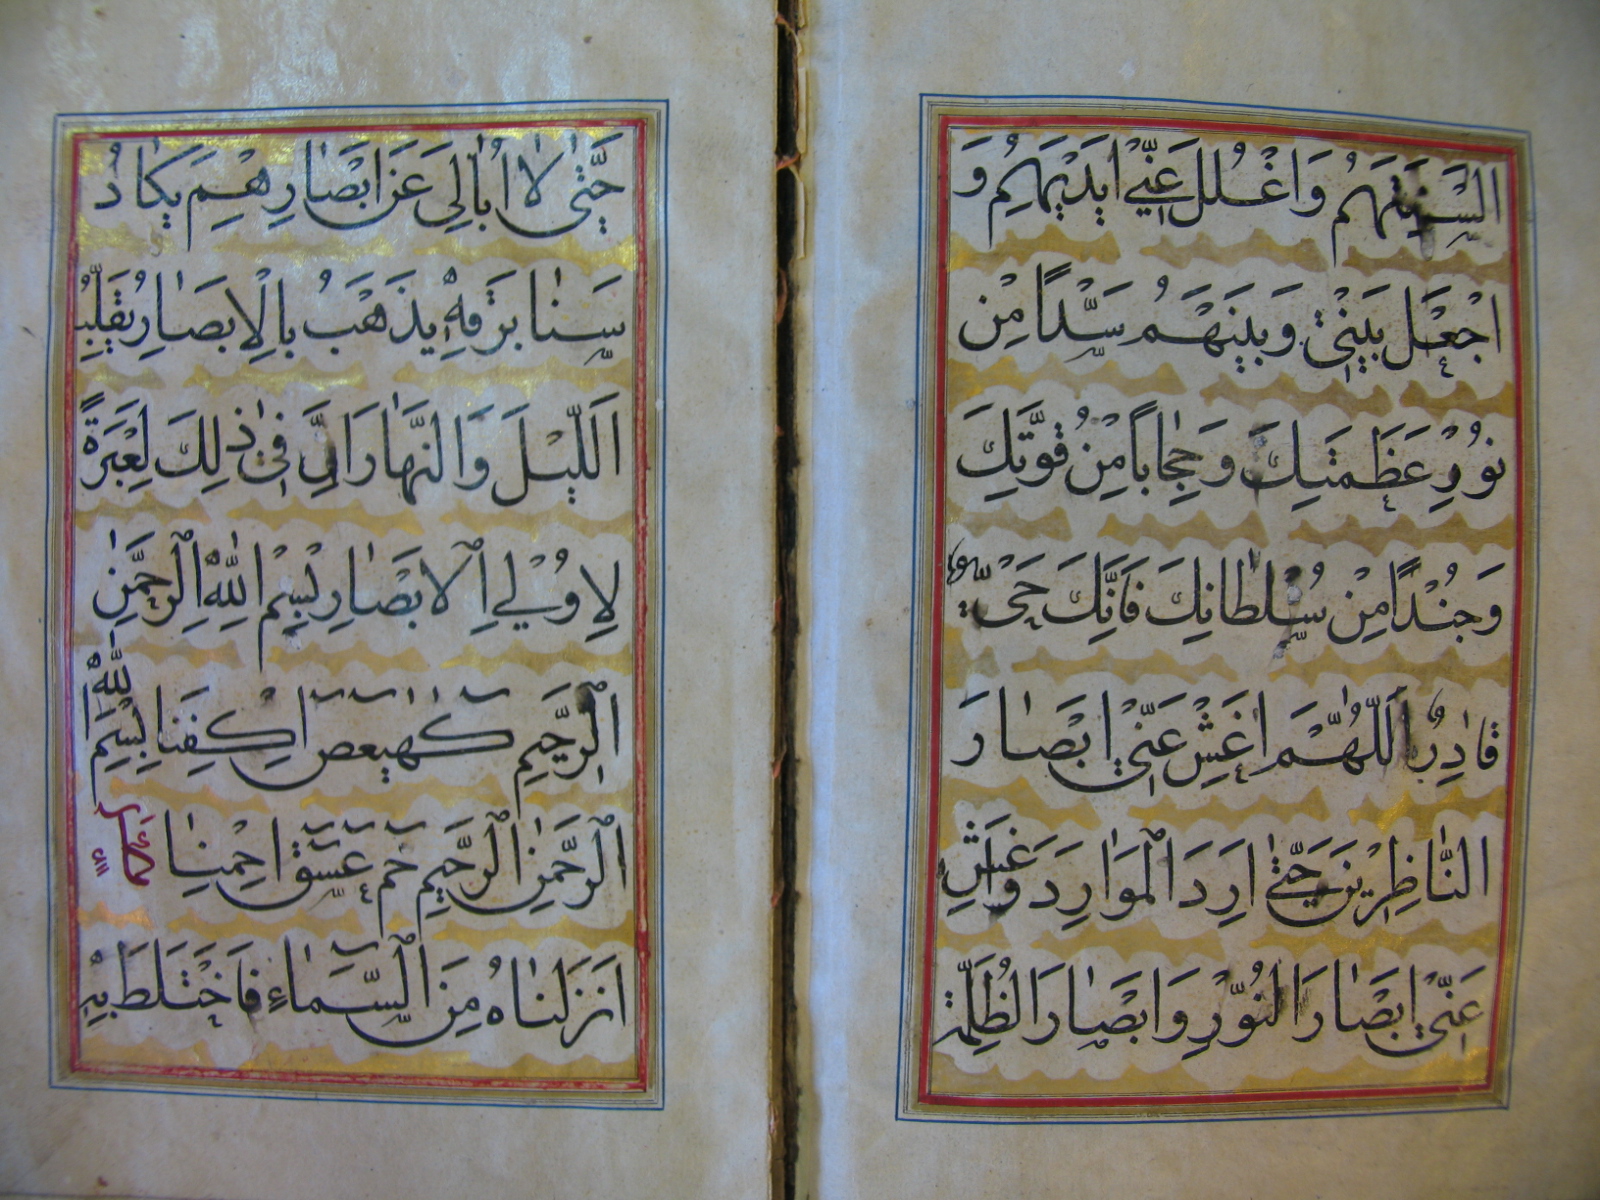 اَلْسِنَتَهُمْ وَاغْلُلْ عَنّٖى اَيْدِيَهُمْ وَ
اجْعَلْ بَيْنٖى وَبَيْنَهُمْ سَدًّا مِنْ
نُورِ عَظَمَتِكَ وَحِجَابًا مِنْ قُوَّتِكَ
وَجُنْدًا مِنْ سُلْطَانِكَ فَاِنَّكَ حَىٌّ
قَادِرٌ اَللّٰهُمَّ اغْشِ عَنّٖى اَبْصَارَ
النَّاظِرٖينَ حَتّٰى اَرِدَ الْمَوَارِدَ وَاغْشِ
عَنّٖى اَبْصَارَ النُّورِ وَاَبْصَارَ الظُّلْمَةِ
حَتّٰى لَا اُبَالِىَ عَنْ اَبْصَارِهِمْ يَكَادُ
سَنَا بَرْقِهٖ يَذْهَبُ بِالْاَبْصَارِ يُقَلِّبُ
اَللّٰهُ الَّيْلَ وَالنَّهَارَ اِنَّ فٖى ذٰلِكَ لَعِبْرَةً
لِاُولِى الْاَبْصَارِ بِسْمِ اللّٰهِ الرَّحْمٰنِ
الرَّحٖيمِ كٓهٰيٰعٓصٓ اِكْفِنَا بِسْمِ اللّٰهِ
الرَّحْمٰنِ الرَّحٖيمِ حٰمٓ عٓسٓقٓ اِحْمِنَا كَمَٓاءٍ
اَنْزَلْنَاهُ مِنَ السَّمَٓاءِ فَاخْتَلَطَ بِهٖ